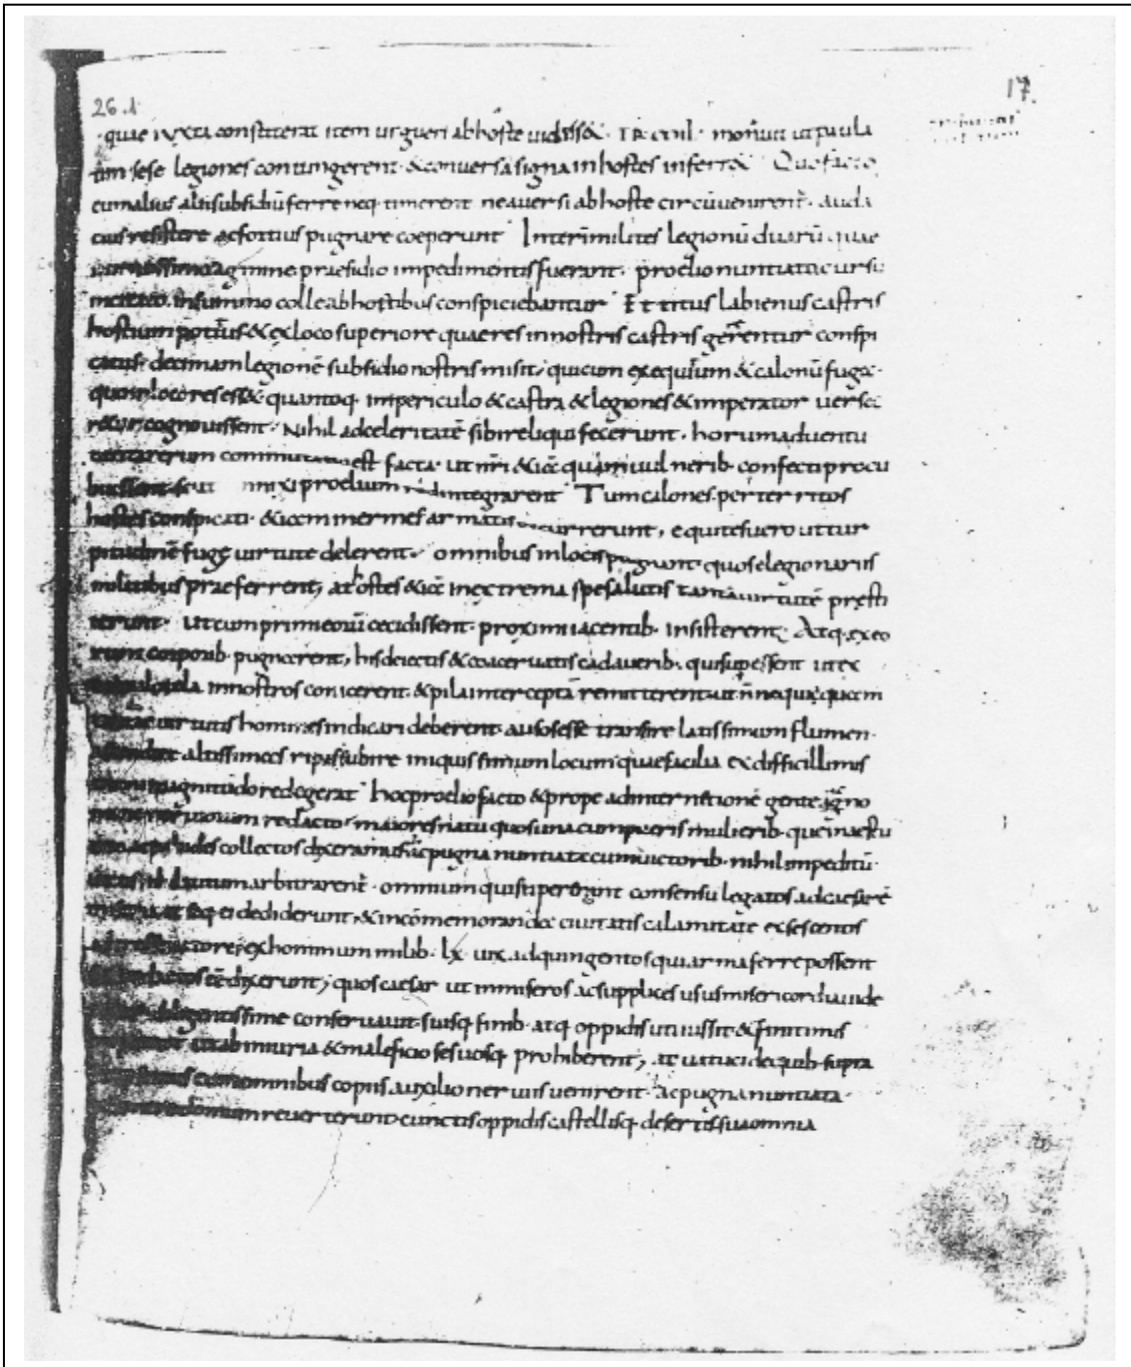 26.1
17.
quae iuxta constiterat item urgueri ab hoste uidiss& · TR · mil · monuit ut paula
tim sese legiones coniungerent · & conuersa signa in hostes inferr& Quo facto
cum alius alii subsidiū ferre neq· timerent ne auersi ab hoste circūuenirent̄ · auda
cius resistere ac fortius pugnare coeperunt Interī milites legionū duarū quae
agmine praesidio impedimentis fuerant · proelio nuntiato cursu
in summo colle ab hostibus conspiciebantur Et titus labienus castris
hostium potitus & ex loco superiore quae res in nostris castris gererentur conspi
catus · decimam legionē subsidio nostris misit, qui cum ex equitum & calonū fuga ·
quo in loco res ess& quantoq· in periculo & castra & legiones & imperator uersa
r&ur cognouissent · Nihil ad celeritatē sibi reliqui fecerunt · horum aduentu
tanta rerum commutatio est facta · ut nr̄i &iā qui uulnerib· confecti procu
buissent scutis nixi proelium redintegrarent Tum calones perterritos
hostes conspicati · &iam inermes armatis occurrerunt, equites uero ut tur
pitudinē fugę uirtute delerent · omnibus in locis pugnant quo se legionariis
militibus praeferrent, at hostes &iā in extrema spe salutis tantā uirtutē presti
terunt · ut cum primi eorū cecidissent · proximi iacentib· insisterent, Atq· ex eo
rum corporib· pugnarent, his deiectis & coaceruatis cadauerib· qui supessent ut ex
tumulo tela in nostros conicerent & pila intercepta remitterent · ut n̄ nequaquam
tantae uirtutis homines iudicari deberent · ausos esse transire latissimum flumen ·
altissimas ripas subire iniquissimum locum quae facilia ex difficillimis
animi magnitudo redegerat hoc proelio facto & prope ad internetionē gente
nomine neruiorum redacto maiores natu quos una cum pueris mulierib· que in aestu
collectos dixeramus ac pugna nuntiata cum uictorib· nihil impeditū ·
uictis nil tutum arbitrarent̄ · omnium qui supererant consensu legatos ad caesarē
miserunt seq· ei dediderunt, & in cōmemoranda ciuitatis calamitate ex sescentis
ex hominum milib· lx · uix ad quingentos qui arma ferre possent
ēē dixerunt, quos caesar ut in miseros ac supplices usus misericordia uide
diligentissime conseruauit · suisq· finib· atq· oppidis uti iussit & finitimis
ut ab iniuria & maleficio se suosq· prohiberent, atuatuci de quib· supra
cum omnibus copiis auxilio neruiis uenirent · hac pugna nuntiata ·
domum reuerterunt · cunctis oppidis castellisq· desertis sua omnia